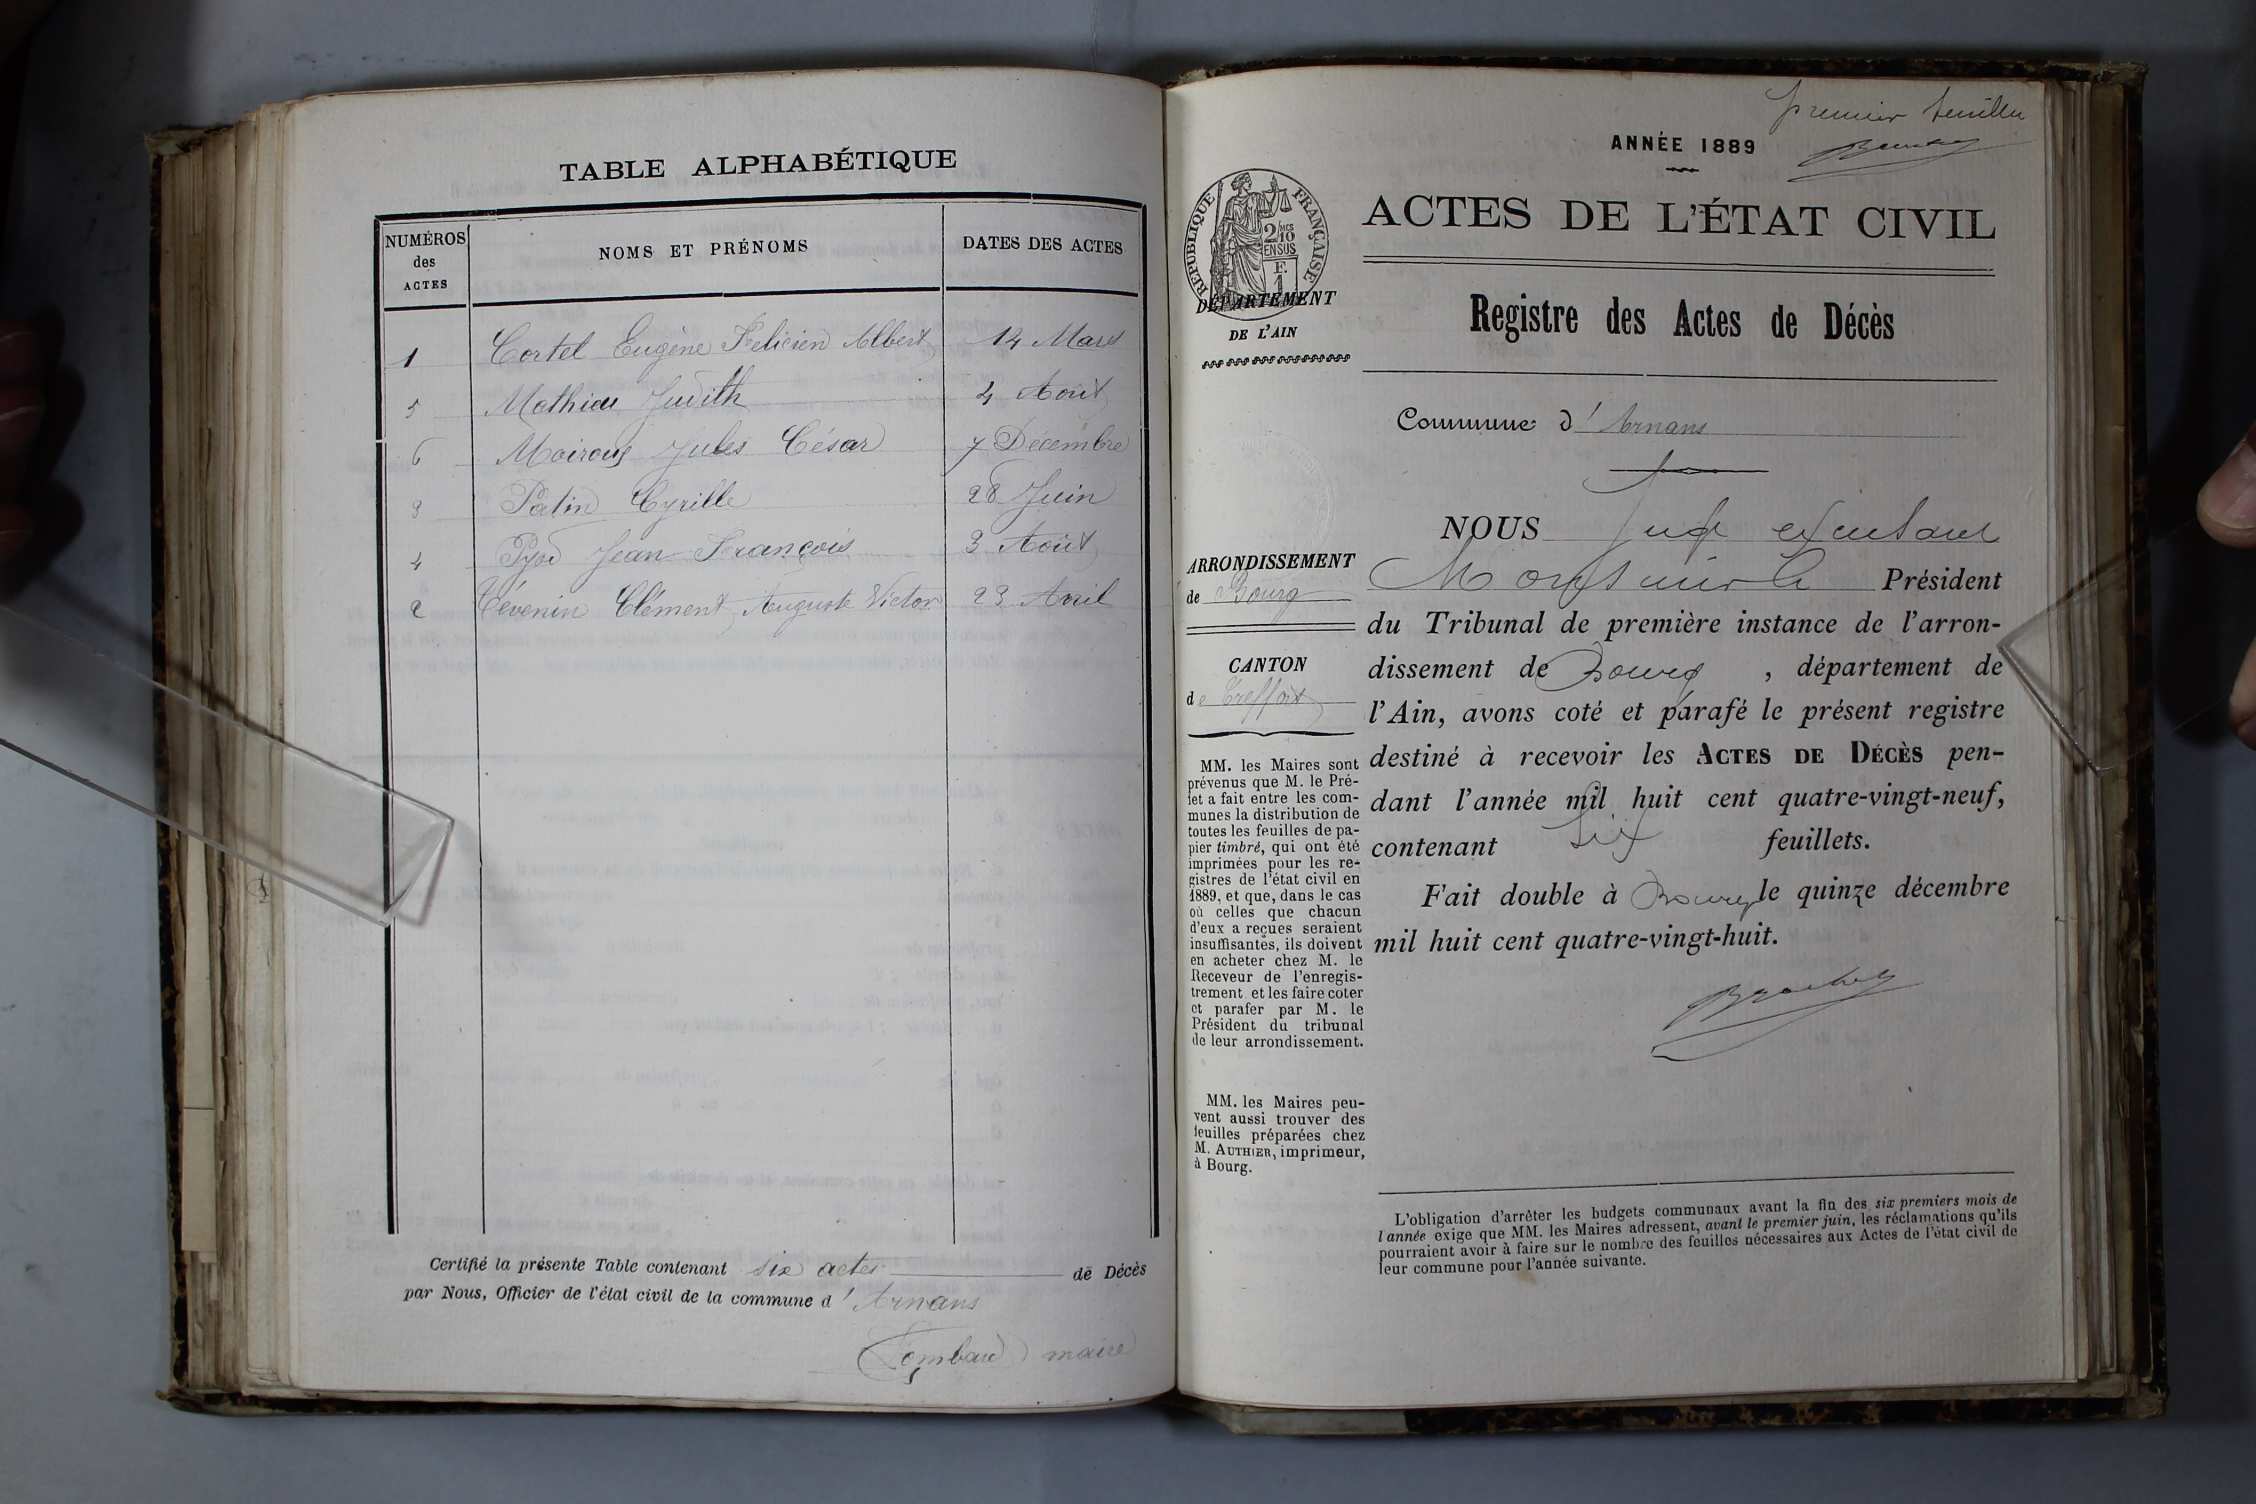 TABLE ALPHABÉTIQUE
NUMÉROS des ACTES
NOMS ET PRÉNOMS
DATES DES ACTES
1 Cortel Eugène Felicien Albert 14 Mars
5 Mathieu Judith 4 Août
6 Moiroux Jules César 7 Décembre
3 Patin Cyrille 28 Juin
4 Pyod Jean François 3 Août
2 Tévenin Clément Auguste Victor 23 Avril
Certifié la présente Table contenant six actes de Décès
par Nous, Officier de l'état civil de la commune d'Arnans
maire
premier feuillet
ANNÉE 1889
ACTES DE L'ÉTAT CIVIL
RÉPUBLIQUE FRANÇAISE
2/10 EN SUS
F. 1
DÉPARTEMENT
DE L'AIN
Registre des Actes de Décès
Commune d'Arnans
ARRONDISSEMENT
de Bourg
CANTON
de Treffort
MM. les Maires sont
prévenus que M. le Pré-
fet a fait entre les com-
munes la distribution de
toutes les feuilles de pa-
pier timbré, qui ont été
imprimées pour les re-
gistres de l'état civil en
1889, et que, dans le cas
où celles que chacun
d'eux a reçues seraient
insuffisantes, ils doivent
en acheter chez M. le
Receveur de l'enregis-
trement et les faire coter
et parafer par M. le
Président du tribunal
de leur arrondissement.
MM. les Maires peu-
vent aussi trouver des
feuilles préparées chez
M. AUTHIER, imprimeur,
à Bourg.
NOUS Juge
Monsieur le Président
du Tribunal de première instance de l'arron-
dissement de Bourg, département de
l'Ain, avons coté et parafé le présent registre
destiné à recevoir les ACTES DE DÉCÈS pen-
dant l'année mil huit cent quatre-vingt-neuf,
contenant six feuillets.
Fait double à Bourg le quinze décembre
mil huit cent quatre-vingt-huit.
L'obligation d'arrêter les budgets communaux avant la fin des six premiers mois de
l'année exige que MM. les Maires adressent, avant le premier juin, les réclamations qu'ils
pourraient avoir à faire sur le nombre des feuilles nécessaires aux Actes de l'état civil de
leur commune pour l'année suivante.